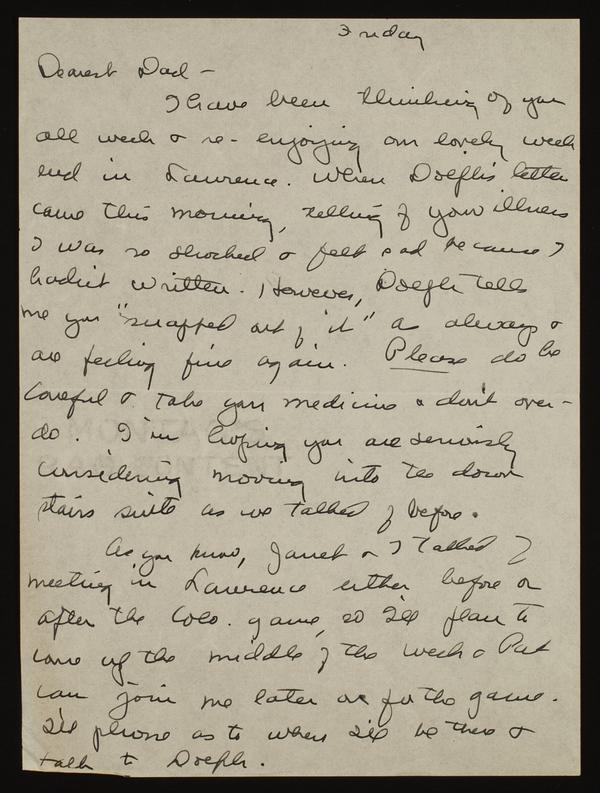 Friday
Dearest Dad -
I have been thinking of you
all week & re-enjoying our lovely week
end in Lawrence. When Doeflis letter
came this morning, telling of your illness
I was so shocked & felt sad because I
hadn't written. However, Doefli tells
me you "snapped out of it" as always &
are feeling fine again. Please do be
careful & take your medicine & don't over-
do. I'm hoping you are seriously
considering moving into the down
stairs suite as we talked of before.
As you know, Janet & I talked of
meeting in Lawrence either before or
after the Colo. game, so I'll plan to
come up the middle of the week & Pat
can join me later or for the game.
I'll phone as to when I'll be there &
talk to Doefli.